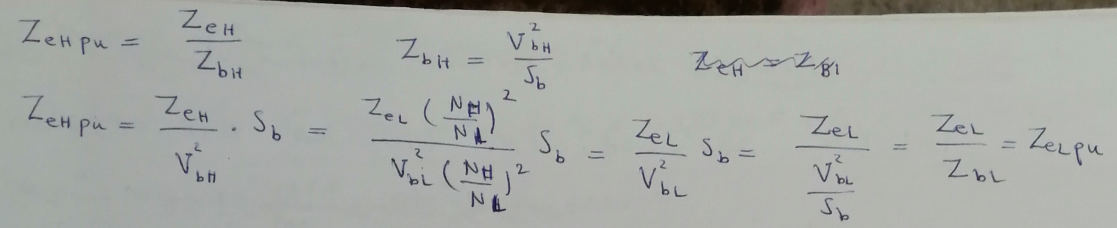 Z_{eH pu} = \frac{Z_{eH}}{Z_{bH}}    Z_{bH} = \frac{V_{bH}^2}{S_b}
Z_{eH pu} = \frac{Z_{eH}}{V_{bH}^2} \cdot S_b = \frac{Z_{eL} (\frac{N_H}{N_L})^2}{V_{bL}^2 (\frac{N_H}{N_L})^2} S_b = \frac{Z_{eL}}{V_{bL}^2} S_b = \frac{Z_{eL}}{\frac{V_{bL}^2}{S_b}} = \frac{Z_{eL}}{Z_{bL}} = Z_{eL pu}